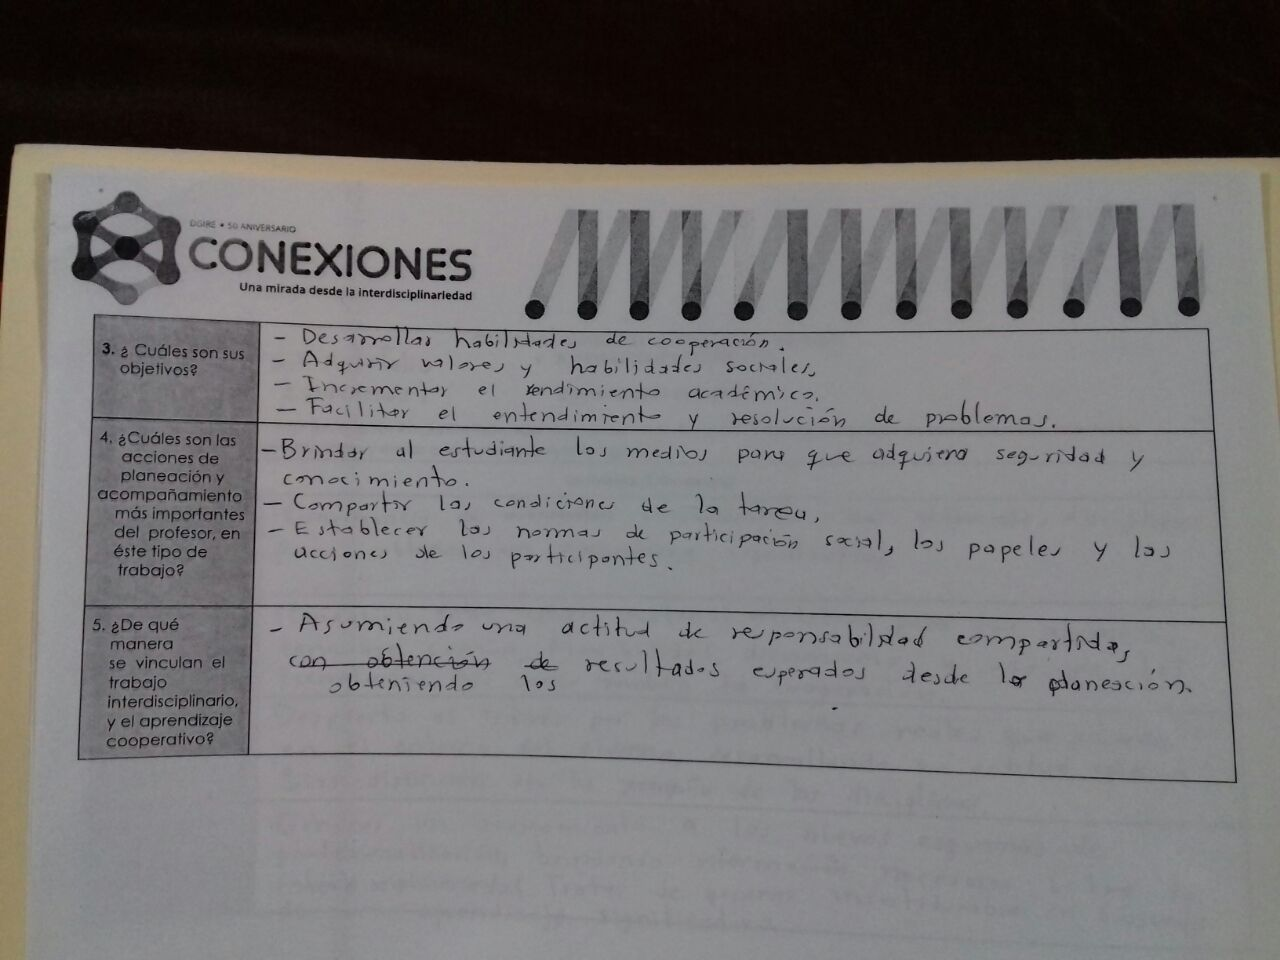 DGIRE • 50 ANIVERSARIO
CONEXIONES
Una mirada desde la interdisciplinariedad
3. ¿ Cuáles son sus
objetivos?
- Desarrollar habilidades de cooperación.
- Adquirir valores y habilidades sociales.
- Incrementar el rendimiento académico.
- Facilitar el entendimiento y resolución de problemas.
4. ¿Cuáles son las
acciones de
planeación y
acompañamiento
más importantes
del profesor, en
éste tipo de
trabajo?
- Brindar al estudiante los medios para que adquiera seguridad y
conocimiento.
- Compartir las condiciones de la tarea,
- Establecer las normas de participación social, los papeles y las
acciones de los participantes.
5. ¿De qué
manera
se vinculan el
trabajo
interdisciplinario,
y el aprendizaje
cooperativo?
- Asumiendo una actitud de responsabilidad compartida,
con obtención de resultados esperados desde la planeación.
obteniendo los